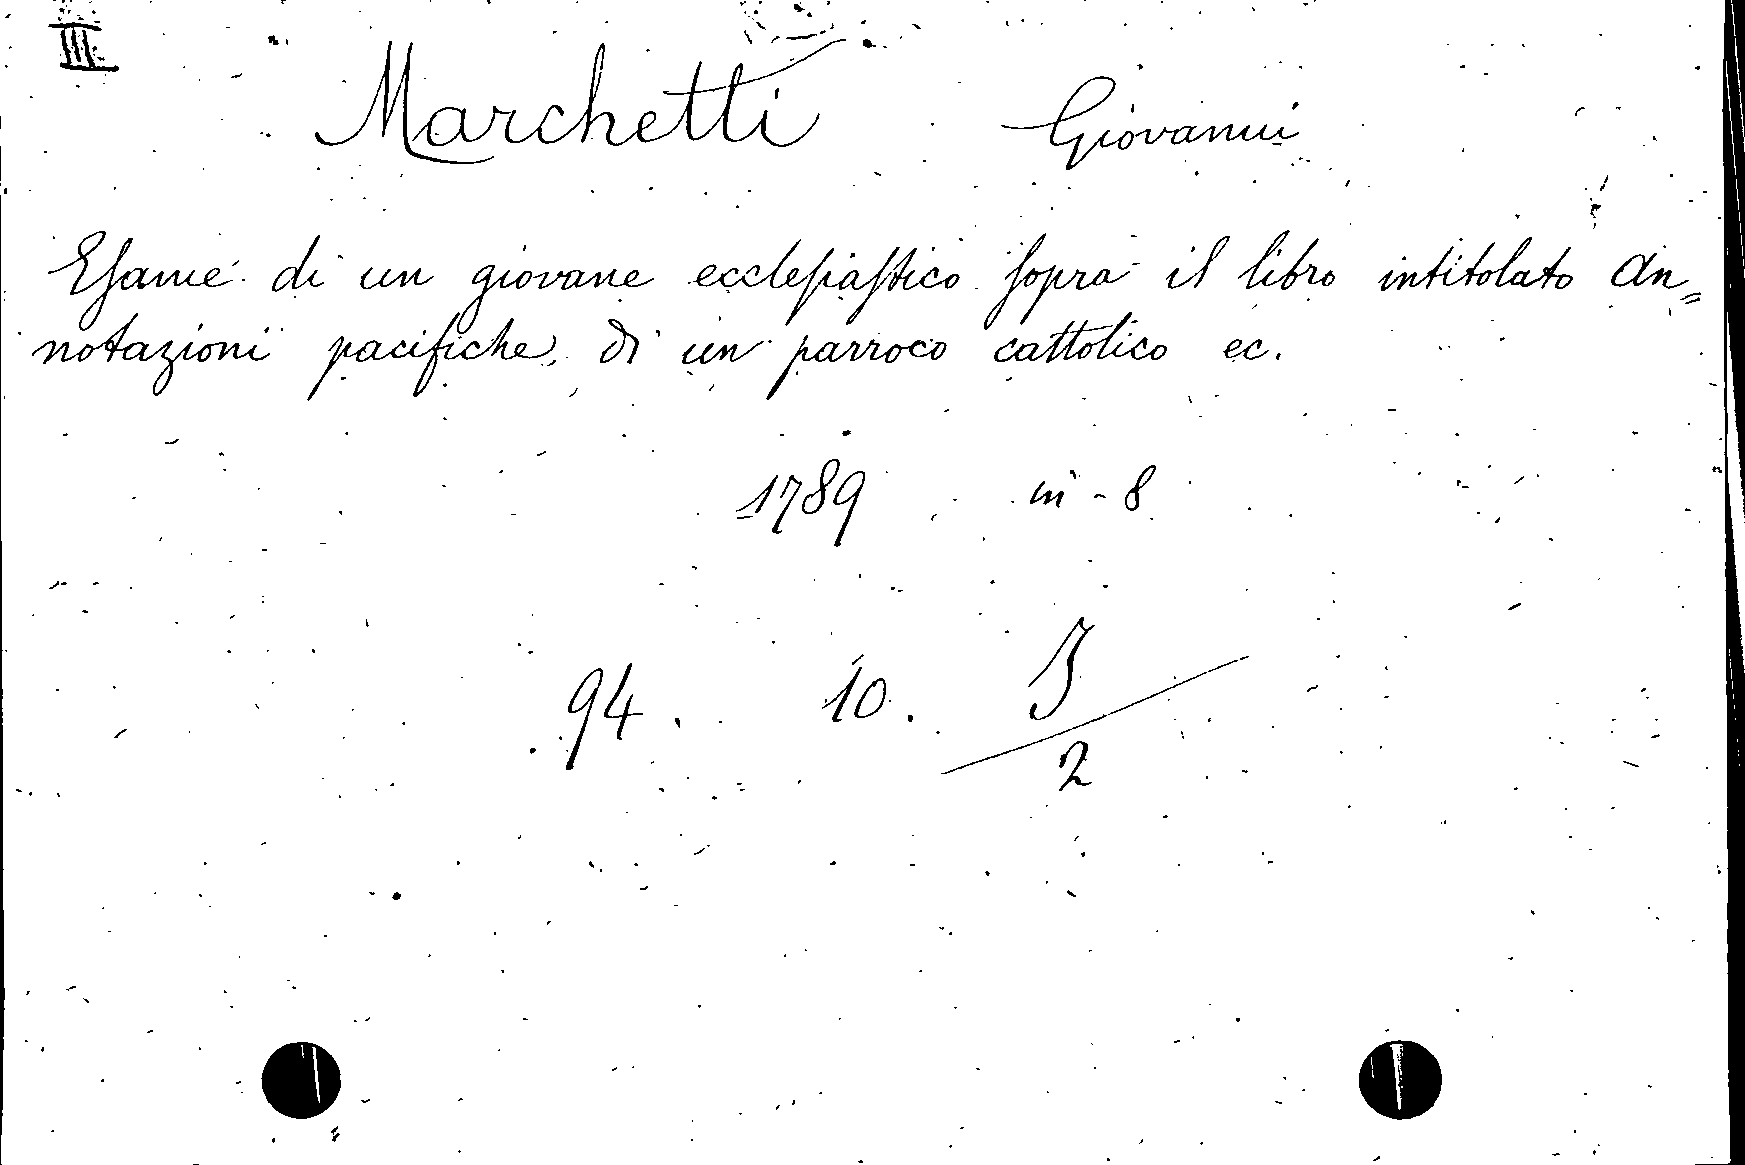 III.
Marchetti Giovanni
Esame di un giovane ecclesiastico sopra il libro intitolato An=
notazioni pacifiche di un parroco cattolico ec.
1789 in-8
94. 10. J/2